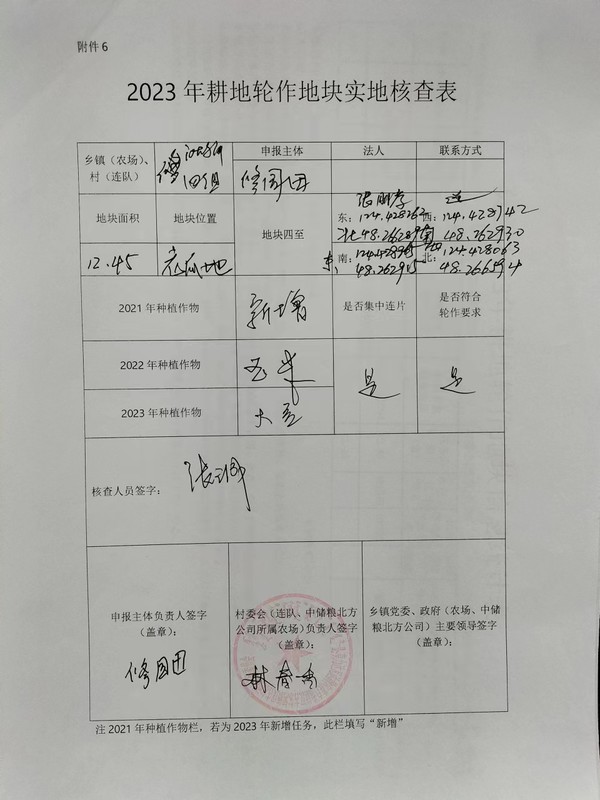 附件 6
2023 年耕地轮作地块实地核查表
乡镇(农场)、
村(连队)
四组
申报主体
修国田
法人
联系方式
地块面积
地块位置
地块四至
东:124.428262
北48.262895
西:124.428742
南 48.262930
12.45
南:
48.262915
北:124.428063
48.266594
2021 年种植作物
新增
是否集中连片
是否符合
轮作要求
2022 年种植作物
玉米
是
是
2023 年种植作物
大豆
核查人员签字:
申报主体负责人签字
(盖章):
修国田
村委会(连队、中储粮北方
公司所属农场)负责人签字
(盖章):
林春
乡镇党委、政府(农场、中储
粮北方公司)主要领导签字
(盖章):
注 2021 年种植作物栏,若为 2023 年新增任务,此栏填写“新增”